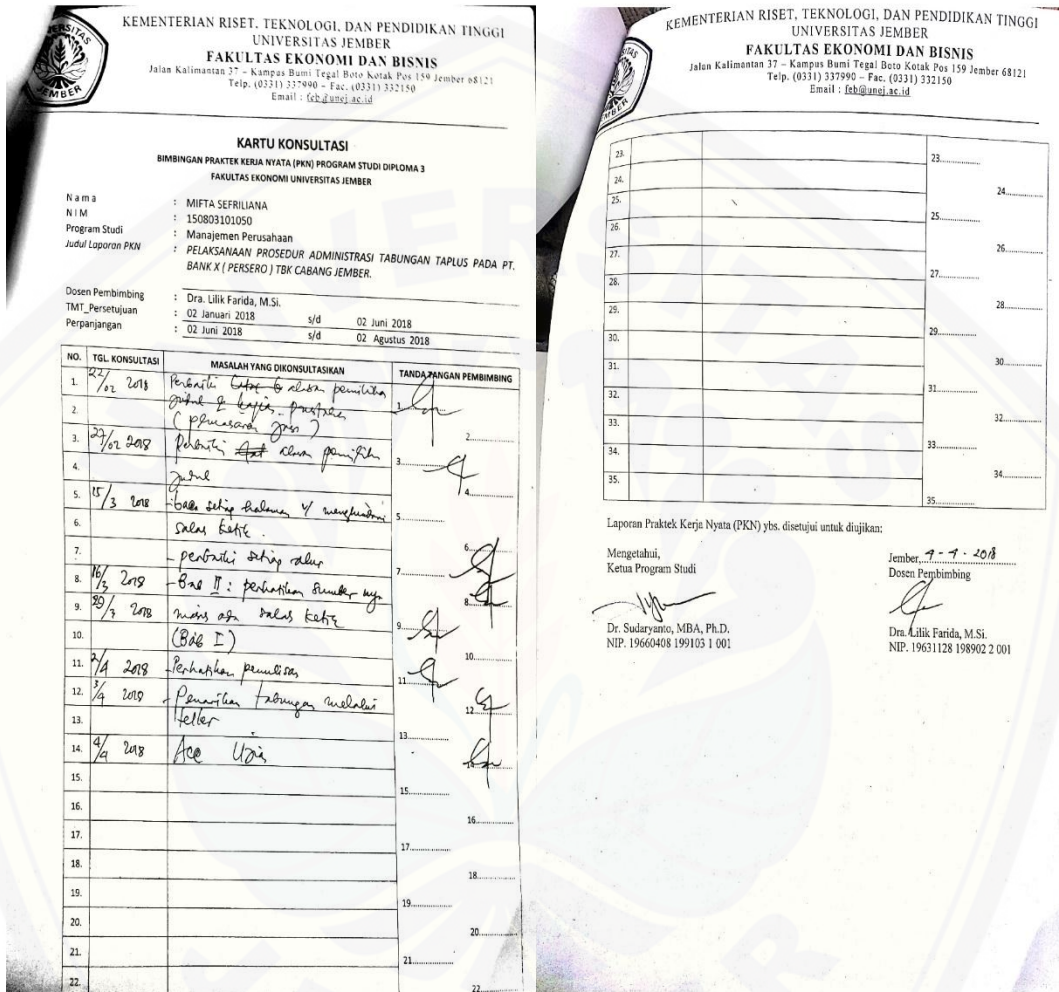 KEMENTERIAN RISET, TEKNOLOGI, DAN PENDIDIKAN TINGGI
UNIVERSITAS JEMBER
FAKULTAS EKONOMI DAN BISNIS
Jalan Kalimantan 37 – Kampus Bumi Tegal Boto Kotak Pos 159 Jember 68121
Telp. (0331) 337990 – Fac. (0331) 332150
Email : feb@unej.ac.id
KARTU KONSULTASI
BIMBINGAN PRAKTEK KERJA NYATA (PKN) PROGRAM STUDI DIPLOMA 3
FAKULTAS EKONOMI UNIVERSITAS JEMBER
N a m a : MIFTA SEFRILIANA
N I M : 150803101050
Program Studi : Manajemen Perusahaan
Judul Laporan PKN : PELAKSANAAN PROSEDUR ADMINISTRASI TABUNGAN TAPLUS PADA PT.
BANK X ( PERSERO ) TBK CABANG JEMBER.
Dosen Pembimbing : Dra. Lilik Farida, M.Si.
TMT_Persetujuan : 02 Januari 2018 s/d 02 Juni 2018
Perpanjangan : 02 Juni 2018 s/d 02 Agustus 2018
NO. TGL. KONSULTASI MASALAH YANG DIKONSULTASIKAN TANDA TANGAN PEMBIMBING
1. 22/02 2018 Perbaiki alasan pemilihan 1
2. judul & kajian pustaka 2
(pemasaran jasa)
3. 27/02 2018 Perbaiki alasan pemilihan 3
4. judul 4
5. 15/3 2018 - baca setiap halaman u/ menghindari 5
6. salah ketik. 6
7. - perbaiki setiap alur 7
8. 16/3 2018 - Bab II : perhatikan sumber nya 8
9. 29/3 2018 masih ada salah ketik 9
10. (Bab I) 10
11. 2/4 2018 - Perhatikan penulisan 11
12. 3/4 2018 - Penarikan tabungan melalui 12
13. teller 13
14. 4/4 2018 Acc Ujian
15. 15
16. 16
17. 17
18. 18
19. 19
20. 20
21. 21
22. 22
KEMENTERIAN RISET, TEKNOLOGI, DAN PENDIDIKAN TINGGI
UNIVERSITAS JEMBER
FAKULTAS EKONOMI DAN BISNIS
Jalan Kalimantan 37 – Kampus Bumi Tegal Boto Kotak Pos 159 Jember 68121
Telp. (0331) 337990 – Fac. (0331) 332150
Email : feb@unej.ac.id
23. 23
24. 24
25. 25
26. 26
27. 27
28. 28
29. 29
30. 30
31. 31
32. 32
33. 33
34. 34
35. 35
Laporan Praktek Kerja Nyata (PKN) ybs. disetujui untuk diujikan:
Mengetahui,
Ketua Program Studi
Dr. Sudaryanto, MBA, Ph.D.
NIP. 19660408 199103 1 001
Jember, 4 - 4 - 2018
Dosen Pembimbing
Dra. Lilik Farida, M.Si.
NIP. 19631128 198902 2 001